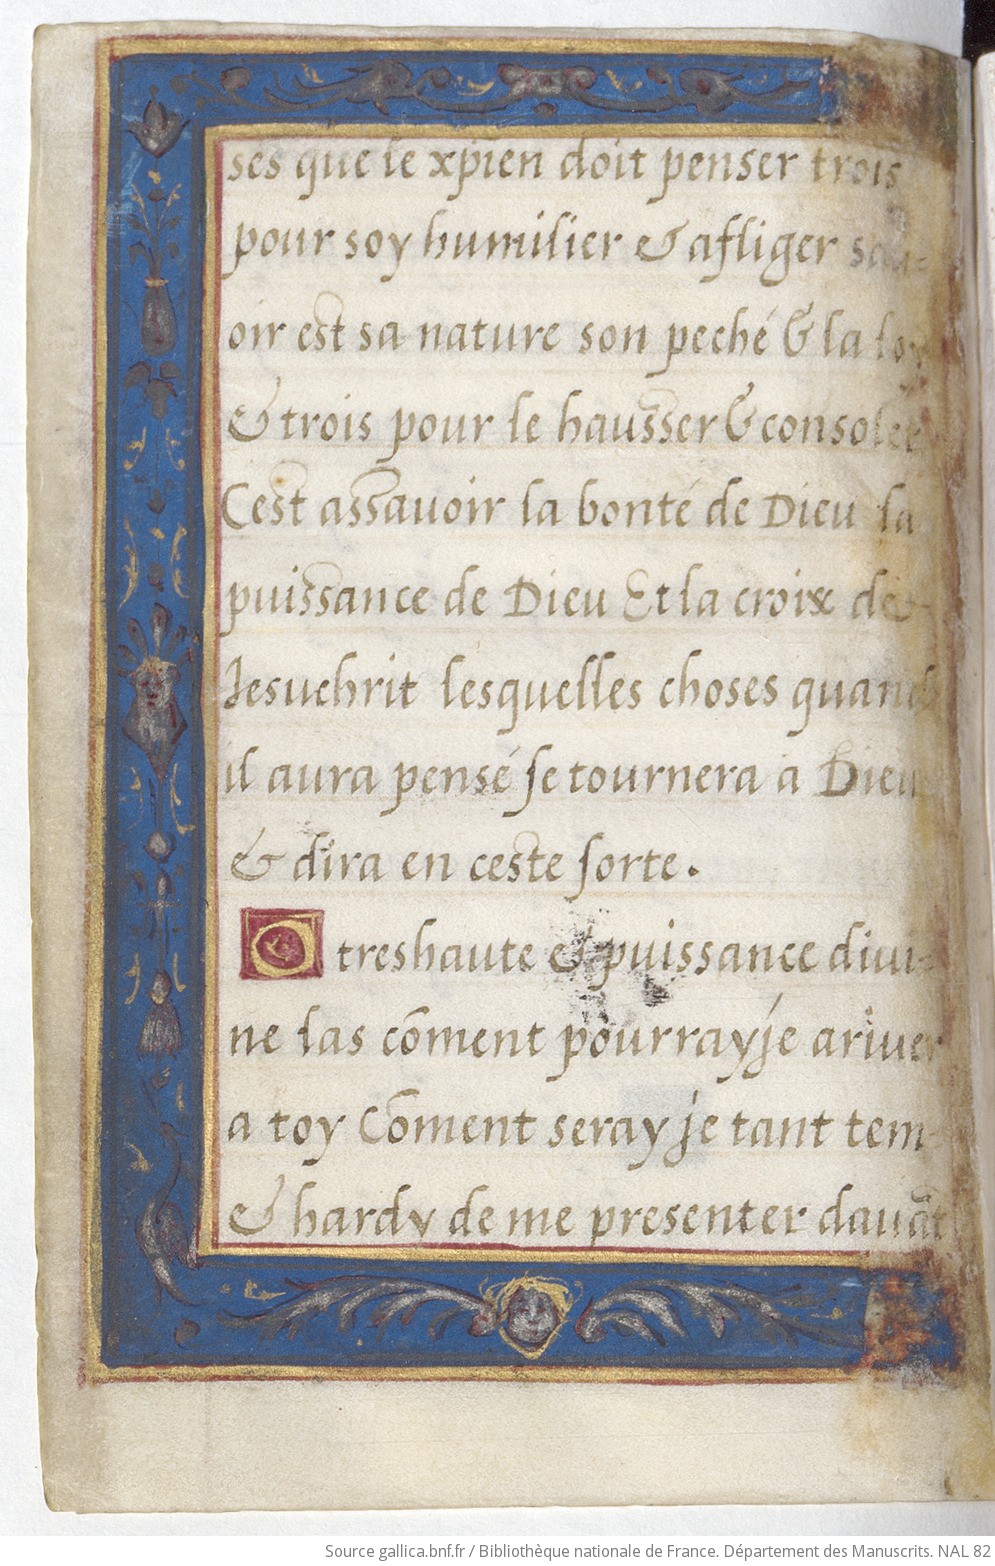 ses que le xpien doit penser trois
pour soy humilier & afliger sau-
oir est sa nature son peché & la loy
& trois pour le hausser & consoler
Cest assauoir la bonté de Dieu la
puissance de Dieu Et la croix de
Jesuchrit lesquelles choses quand
il aura pensé se tournera a Dieu
& dira en ceste sorte.
O treshaute & puissance diui-
ne las cōment pourray je ariuer
a toy Cōment seray je tant tem-
& hardy de me presenter dauāt
Source gallica.bnf.fr / Bibliothèque nationale de France. Département des Manuscrits. NAL 82